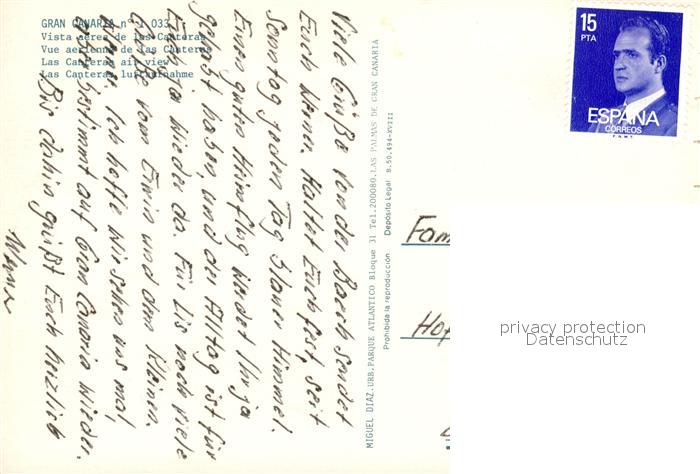 GRAN CANARIA nº 1 033
Vista aérea de las Canteras
Vue aerienne de las Canteras
Las Canteras air view
Las Canteras luftaufnahme
Viele Grüße von der Beach sendet
Euch Werner. Haltet Euch fest, seit
Sonntag jeden Tag blauer Himmel.
Einen guten Heimflug werdet Ihr ja
gehabt haben, und der Alltag ist für
Euch ja wieder da. Für Lis noch viele
Grüße vom Erwin und dem Kleinen.
Ich hoffe wir sehen uns mal,
bestimmt auf Gran Canaria wieder.
Bis dahin grüßt Euch herzlich
MIGUEL DIAZ.URB.PARQUE ATLANTICO Bloque 31 Tel.200080.LAS PALMAS DE GRAN CANARIA
Prohibida la reproducción Depósito Legal B.50.494-XVIII
15
PTA
ESPAÑA
CORREOS
F.N.M.T.
Fam
Hof
privacy protection
Datenschutz